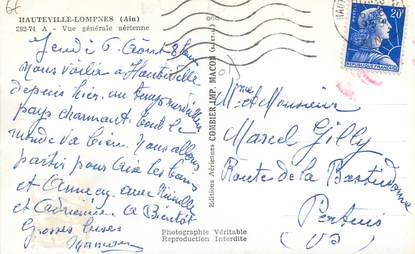 HAUTEVILLE-LOMPNES (Ain)
282-74 A - Vue générale aérienne
Jeudi 6 Août 8h
Nous voilà à Hauteville
depuis hier, un temps merveilleux
pays charmant tout le
monde va bien. Nous allons
partir pour Aix les bains
et Annecy avec
et Adrienne à Bientôt
Grosses bises
Editions Aériennes COMBIER IMP. MACON
Photographie Véritable
Reproduction Interdite
20F
REPUBLIQUE FRANÇAISE
Mme et Monsieur
Marcel Gilly
Route de la Bastidonne
Pertuis